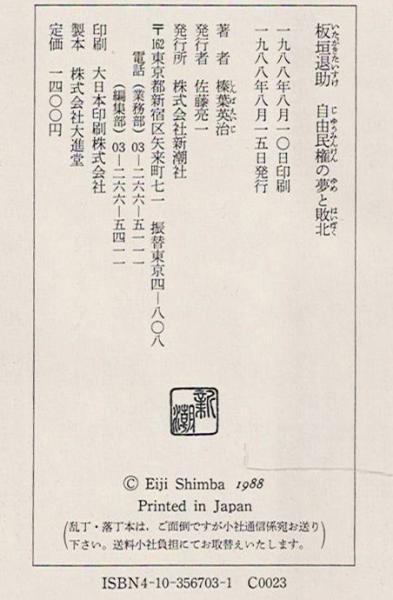 板垣退助　自由民権の夢と敗北
いたがきたいすけ　じゆうみんけん　ゆめ　はいぼく
一九八八年八月一〇日印刷
一九八八年八月一五日発行
著　者　榛葉英治
しんばえいじ
発行者　佐藤亮一
発行所　株式会社新潮社
〒162東京都新宿区矢来町七一　振替東京四―八〇八
電話（業務部）03―二六六―五一一一
（編集部）03―二六六―五四一一
印刷　大日本印刷株式会社
製本　株式会社大進堂
定価　一四〇〇円
新潮
© Eiji Shimba 1988
Printed in Japan
（乱丁・落丁本は、ご面倒ですが小社通信係宛お送り
下さい。送料小社負担にてお取替えいたします。）
ISBN4-10-356703-1 C0023